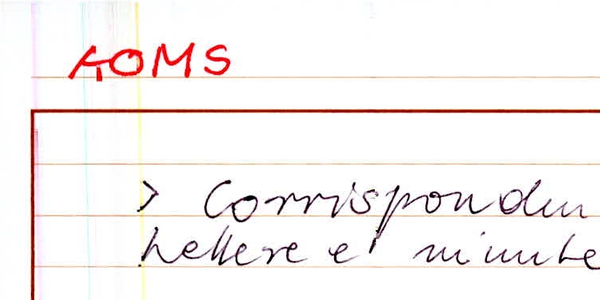 AOMS
> Corrisponden
lettere e minute